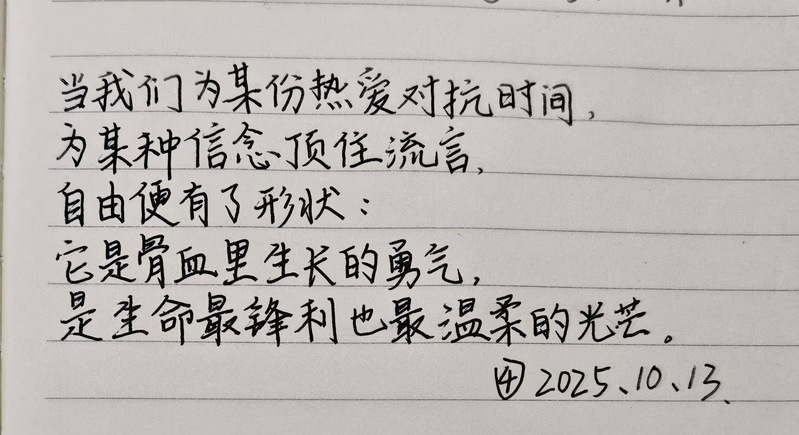 当我们为某份热爱对抗时间,
为某种信念顶住流言,
自由便有了形状:
它是骨血里生长的勇气,
是生命最锋利也最温柔的光芒。
④ 2025、10、13.